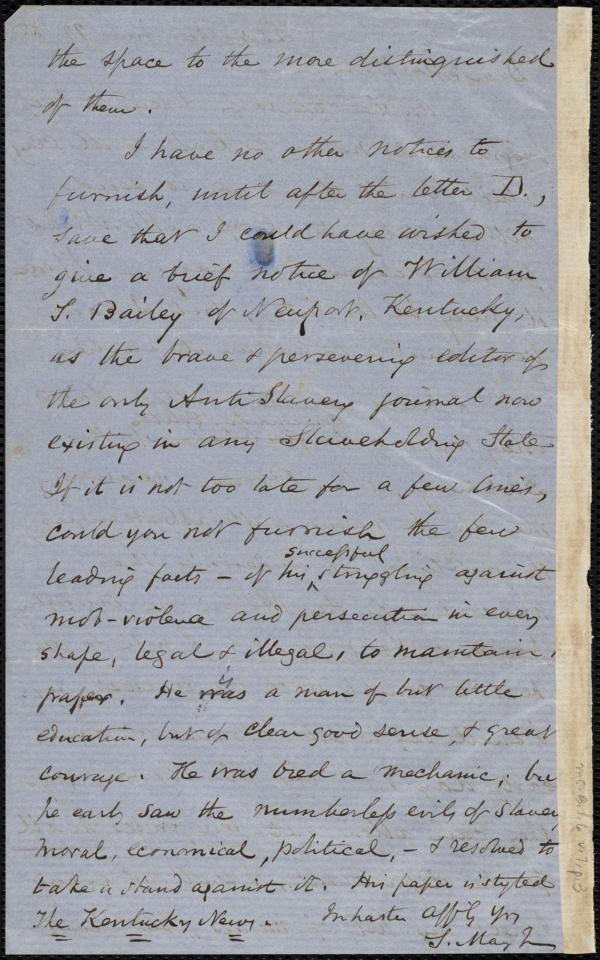 the space to the more distinguished
of them.
I have no other notices to
furnish, until after the letter D.,
save that I could have wished to
give a brief notice of William
S. Bailey of Newport, Kentucky,
as the brave & persevering editor of
the only Anti Slavery journal now
existing in any Slaveholding State
If it is not too late for a few lines,
could you not furnish the few
successful
leading facts – of his struggling against
mob-violence and persecution in every
shape, legal & illegal, to maintain
paper. He was a man of but little
education, but of clear good sense, & great
courage. He was bred a mechanic; but
he early saw the numberless evils of Slavery
moral, economical, political, – & resolved to
take a stand against it. His paper is styled
The Kentucky News. In haste affly yrs
S. May Jr